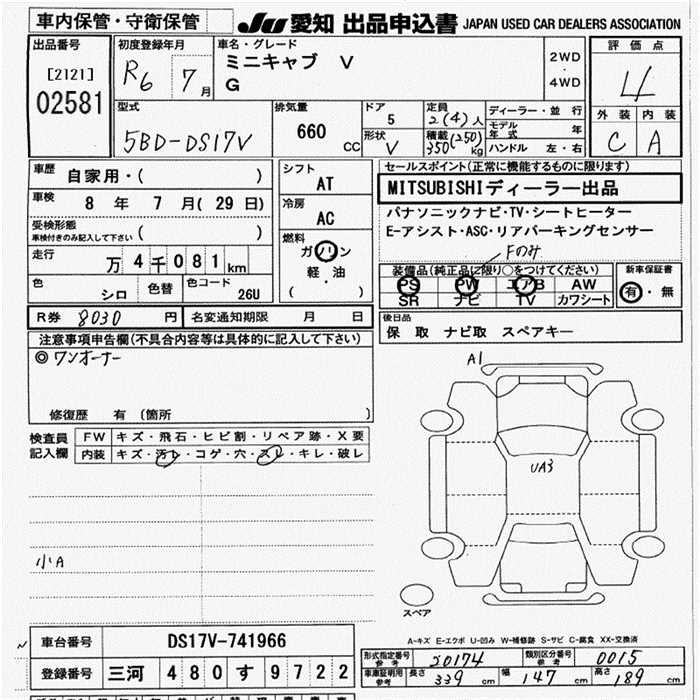 車内保管・守衛保管 JU 愛知 出品申込書 JAPAN USED CAR DEALERS ASSOCIATION
出品番号 初度登録年月 車名・グレード 評価点
[2121] R6 7月 ミニキャブ V 2WD・4WD 4
02581 G
外装 内装
型式 排気量 ドア 定員 ディーラー・並行
5BD-DS17V 660 cc 5 2(4)人 モデル年式 年
形状 積載 ハンドル 左・右 C A
V 350(250)kg
車歴 自家用・( ) シフト セールスポイント(正常に機能するものに限ります)
AT MITSUBISHIディーラー出品
車検 8年 7月(29日) 冷房 パナソニックナビ・TV・シートヒーター
受検形態 AC E-アシスト・ASC・リアパーキングセンサー
車検付きのみ記入して下さい ( ) 燃料 Fのみ
走行 万4千081km ガソリン 装備品(純正品に限り○をつけてください) 新車保証書
軽・油 PS PW エアB AW 有・無
色 シロ 色替 色コード 26U ( ) SR ナビ TV カワシート
R券 8030円 名変通知期限 月 日 後日品
注意事項申告欄(不具合内容等は具体的に記入して下さい) 保 取 ナビ取 スペアキー
◎ワンオーナー A1
修復歴 有 (箇所 )
検査員 FW キズ・飛石・ヒビ割・リペア跡・X要
記入欄 内装 キズ・汚レ・コゲ・穴・スレ・キレ・破レ
UA3
小A
スペア
A-キズ E-エクボ U-凹み W-補修跡 S-サビ C-腐食 XX-交換済
車台番号 DS17V-741966
形式指定番号 参考 20174 類別区分番号 参考 0015
登録番号 三河 480 す 9722
車庫証明用 参考 長さ 339cm 幅 147cm 高さ 189cm